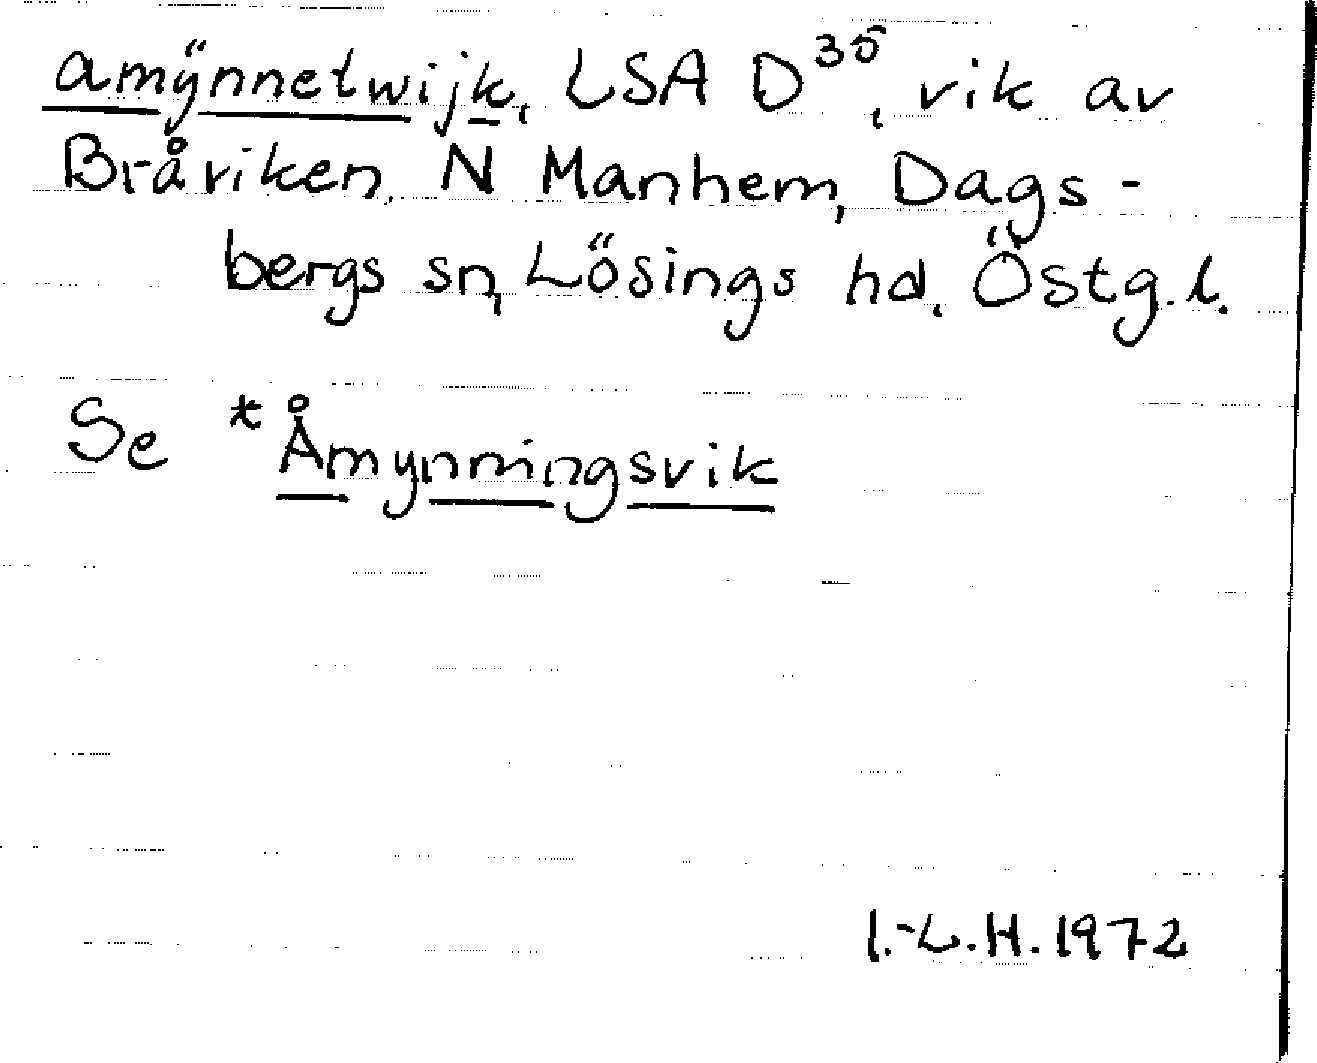 amÿnnetwijk, LSA D35, vik av
Bråviken, N Manhem, Dags-
bergs sn, Lösings hd, Östg. l.
Se *Åmynningsvik
I.-L.H. 1972